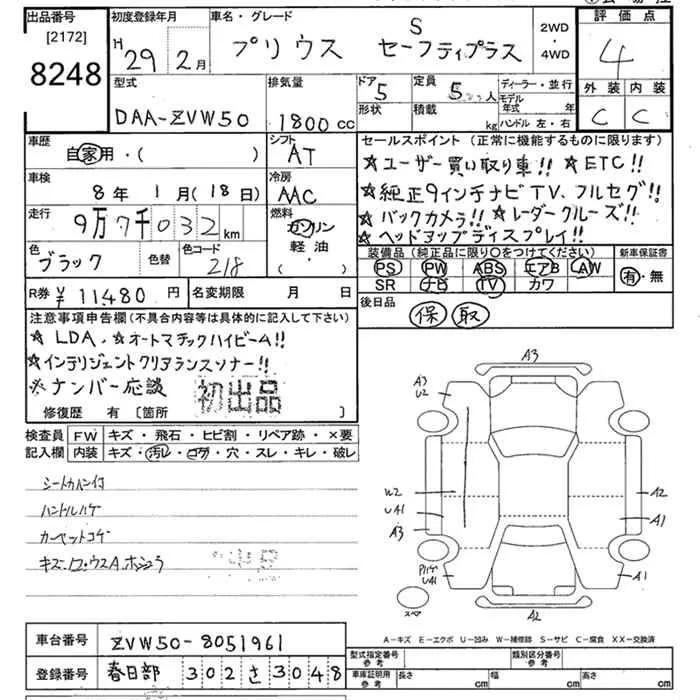 出品番号
[2172]
8248
初度登録年月
H 29年 2月
車名・グレード
プリウス S セーフティプラス
2WD
・
4WD
評価点
4
外装 内装
C C
型式
DAA-ZVW50
排気量
1800cc
ドア 5
形状
定員 5人
積載 kg
ディーラー・並行
モデル年式 年
ハンドル 左・右
車歴
自家用・( )
シフト
AT
車検
8年 1月(18日)
冷房
AAC
走行
9万7千032km
燃料
ガソリン
軽油
( )
色
ブラック
色替
色コード
218
R券 ¥11480円
名変期限 月 日
セールスポイント(正常に機能するものに限ります)
☆ユーザー買い取り車!! ☆ETC!!
☆純正9インチナビTV、フルセグ!!
☆バックカメラ!! ☆レーダークルーズ!!
☆ヘッドアップディスプレイ!!
装備品(純正品に限り○をつけてください)
PS PW ABS エアB AW
SR ナビ TV カワ
新車保証書
有・無
後日品
保 取
注意事項申告欄(不具合内容等は具体的に記入して下さい)
☆LDA、☆オートマチックハイビーム!!
☆インテリジェントクリアランスソナー!!
※ナンバー応談
初出品
修復歴 有 〔箇所 〕
検査員
記入欄
FW キズ・飛石・ヒビ割・リペア跡・×要
内装 キズ・汚レ・コゲ・穴・スレ・キレ・破レ
シートカバー付
ハンドルハゲ
カーペットコゲ
A3
A3
U2
W2
UA1
A3
A2
A1
UA1
A1
A2
スペア
A-キズ E-エクボ U-凹み W-補修跡 S-サビ C-腐食 XX-交換済
車台番号 ZVW50-8051961
登録番号 春日部 302 さ 3048
型式指定番号
参考
類別区分番号
参考
車庫証明用
参考
長さ cm
幅 cm
高さ cm